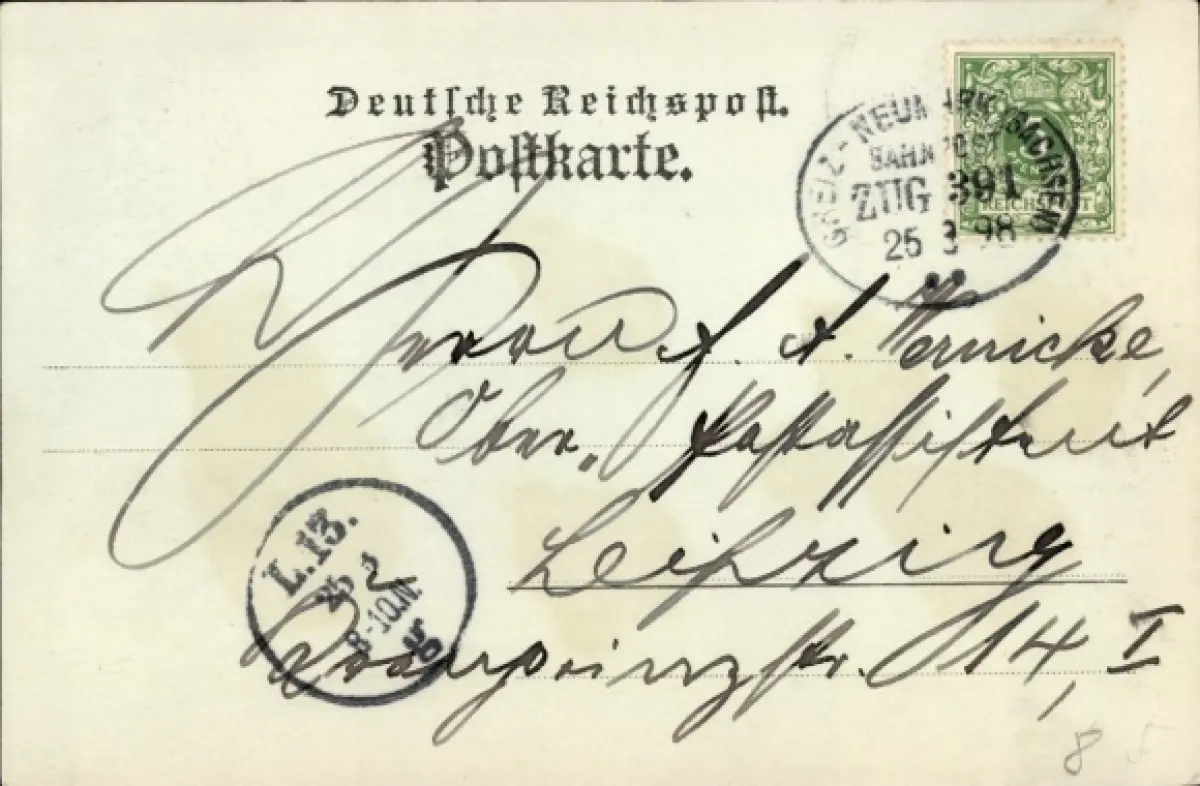 Deutsche Reichspost.
Postkarte.
GREIZ - NEUMARK (SACHSEN)
BAHNPOST
ZUG 391
25 3 98
REICHSPOST
Ober-Postassistent
Leipzig
Kronprinzstr. 14, I
L. 13.
25 3
8-10.N.
8